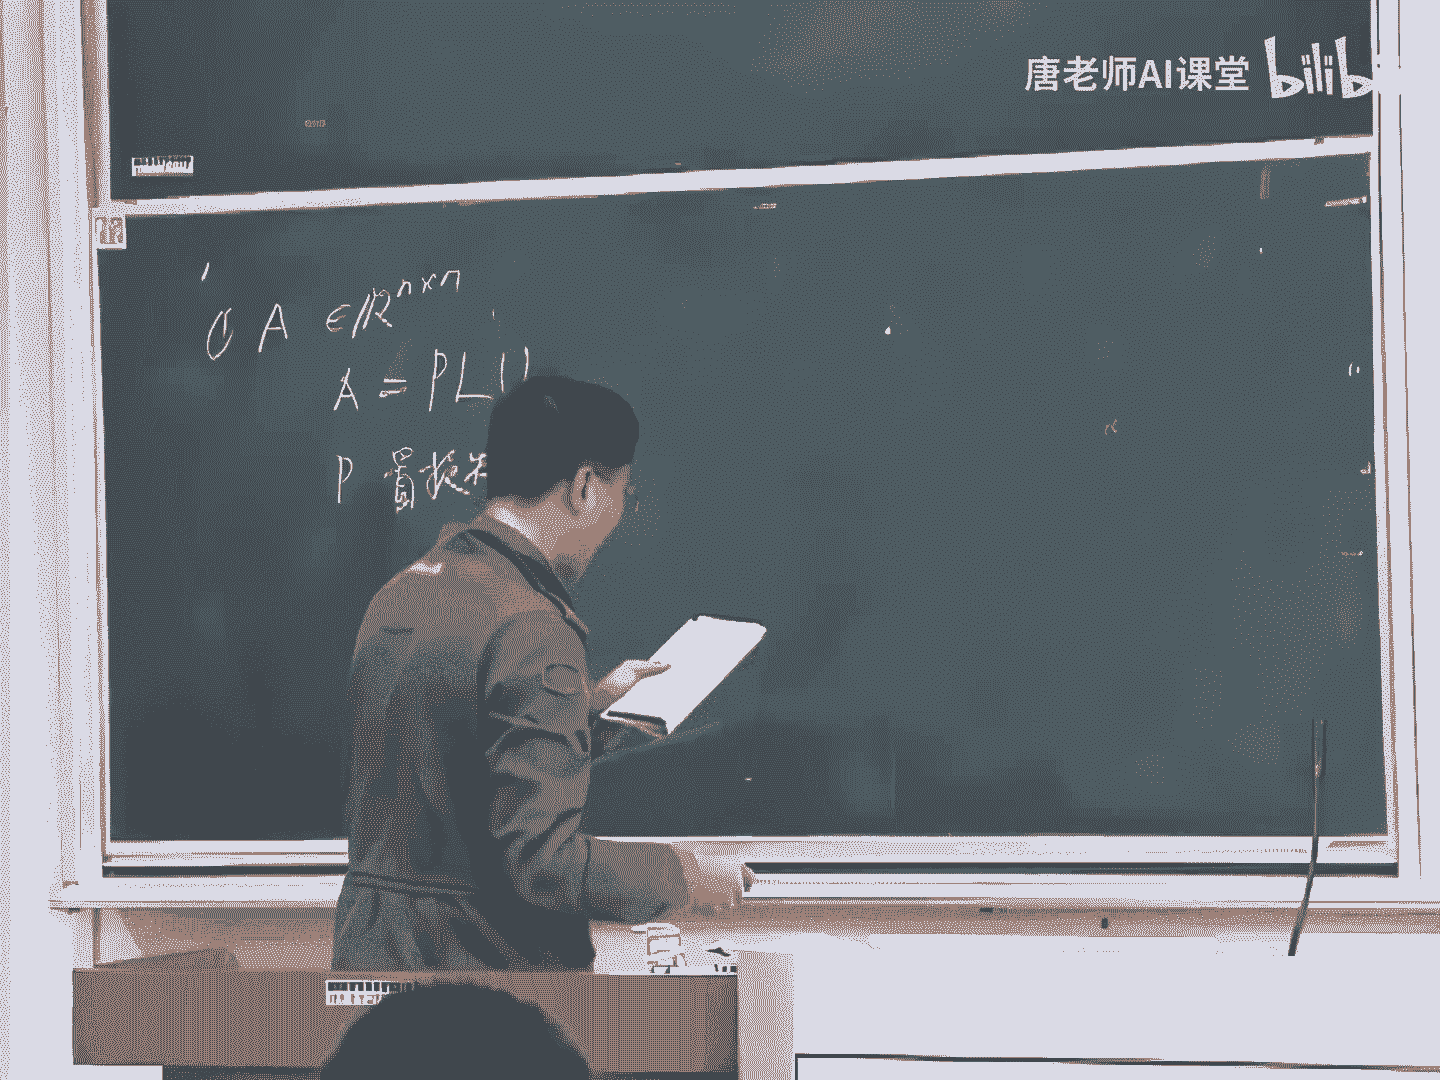 唐老师AI课堂 bilib
① A ∈ ℝⁿˣⁿ
A = PLU
P 置换